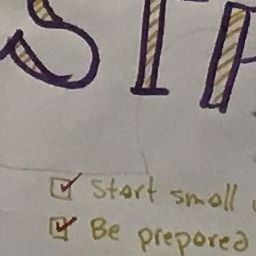 Start small
Be prepared